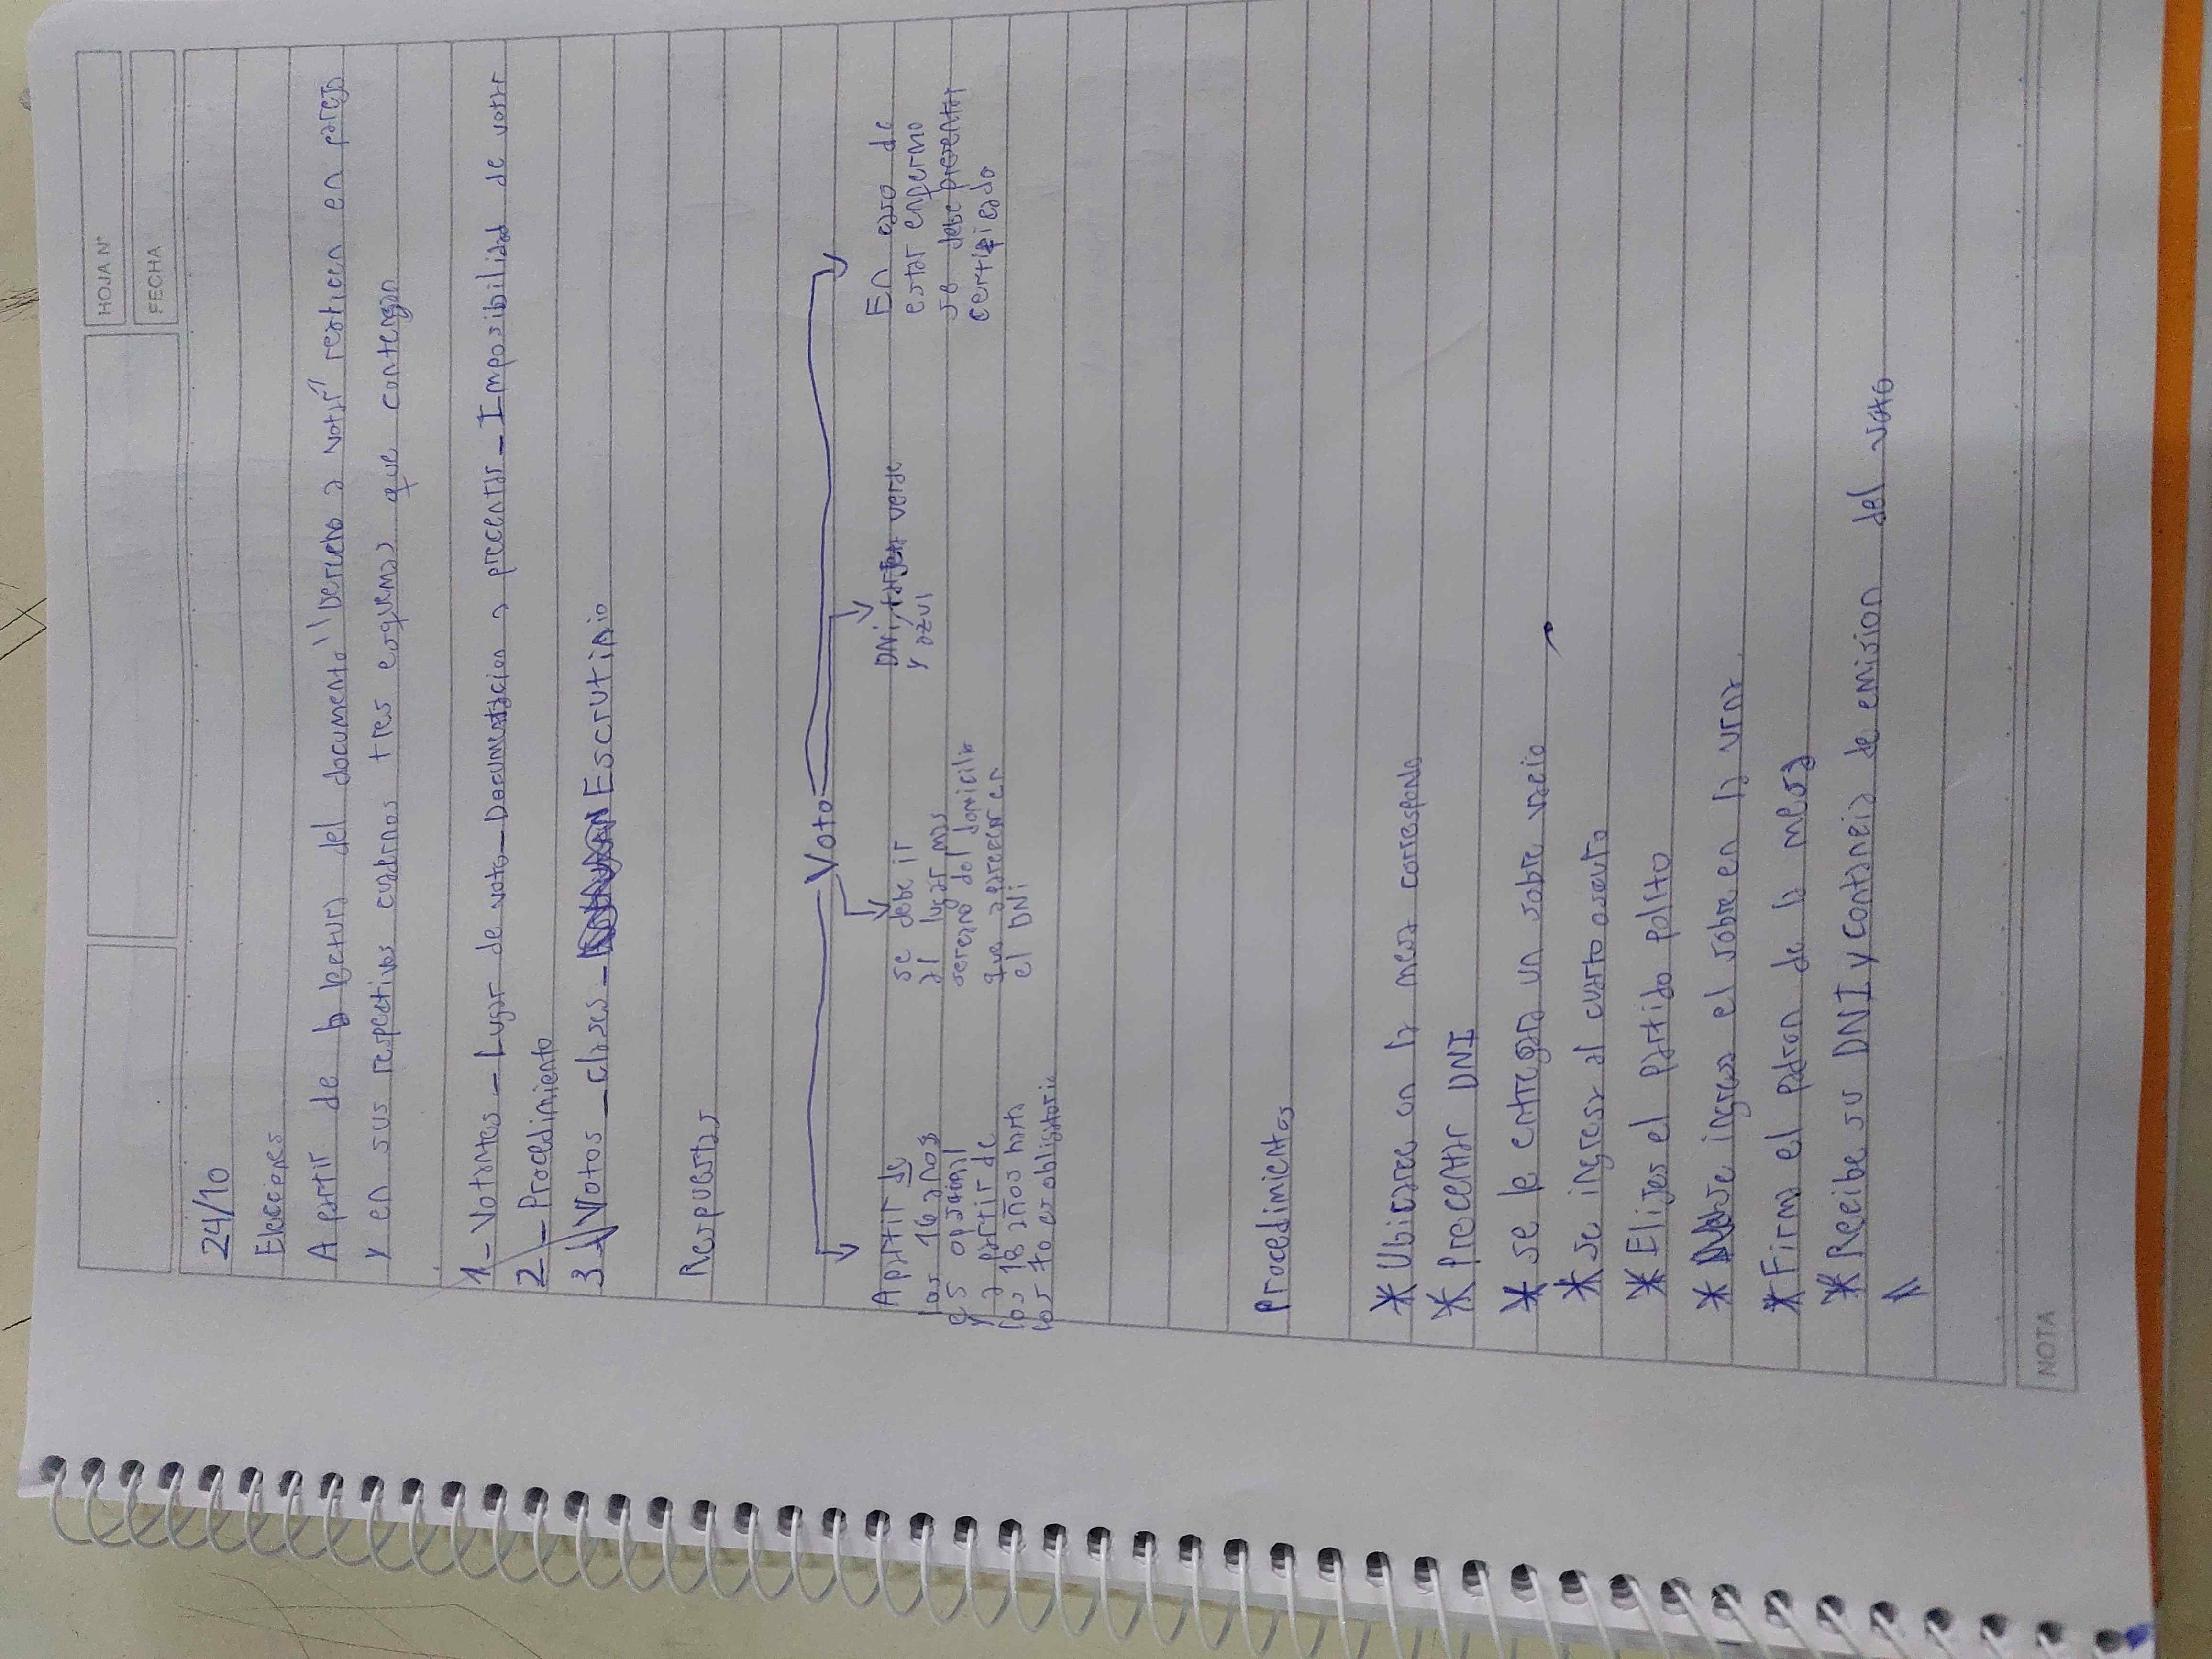 HOJA N°
FECHA
24/10
Elecciones
A partir de la lectura del documento "Derecho a votar" realicen en pareja
y en sus respectivos cuadernos tres esquemas que contengan
1 - Votantes - Lugar de voto - Documentacion a precentar - Imposibilidad de votar
2 - Procedimiento
3 - Votos - clases - Escrutinio
Respuestas
Voto
A partir de
los 16 años
es opsional
y a partir de
los 18 años hasta
los 70 es obligatorio
se debe ir
al lugar mas
sercano del domicilio
que aparece en
el DNi
DNi, tarjeta verde
y azul
En caso de
estar enfermo
se debe presentar
certificado
Procedimientos
* Ubicarce en la mesa corresponda
* Precentar DNI
* se le entregara un sobre vacio
* se ingresa al cuarto oscuro
* Elijes el partido polito
* se ingresa el sobre en la urna.
* Firma el padron de la mesa
* Recibe su DNI y contancia de emision del voto
NOTA